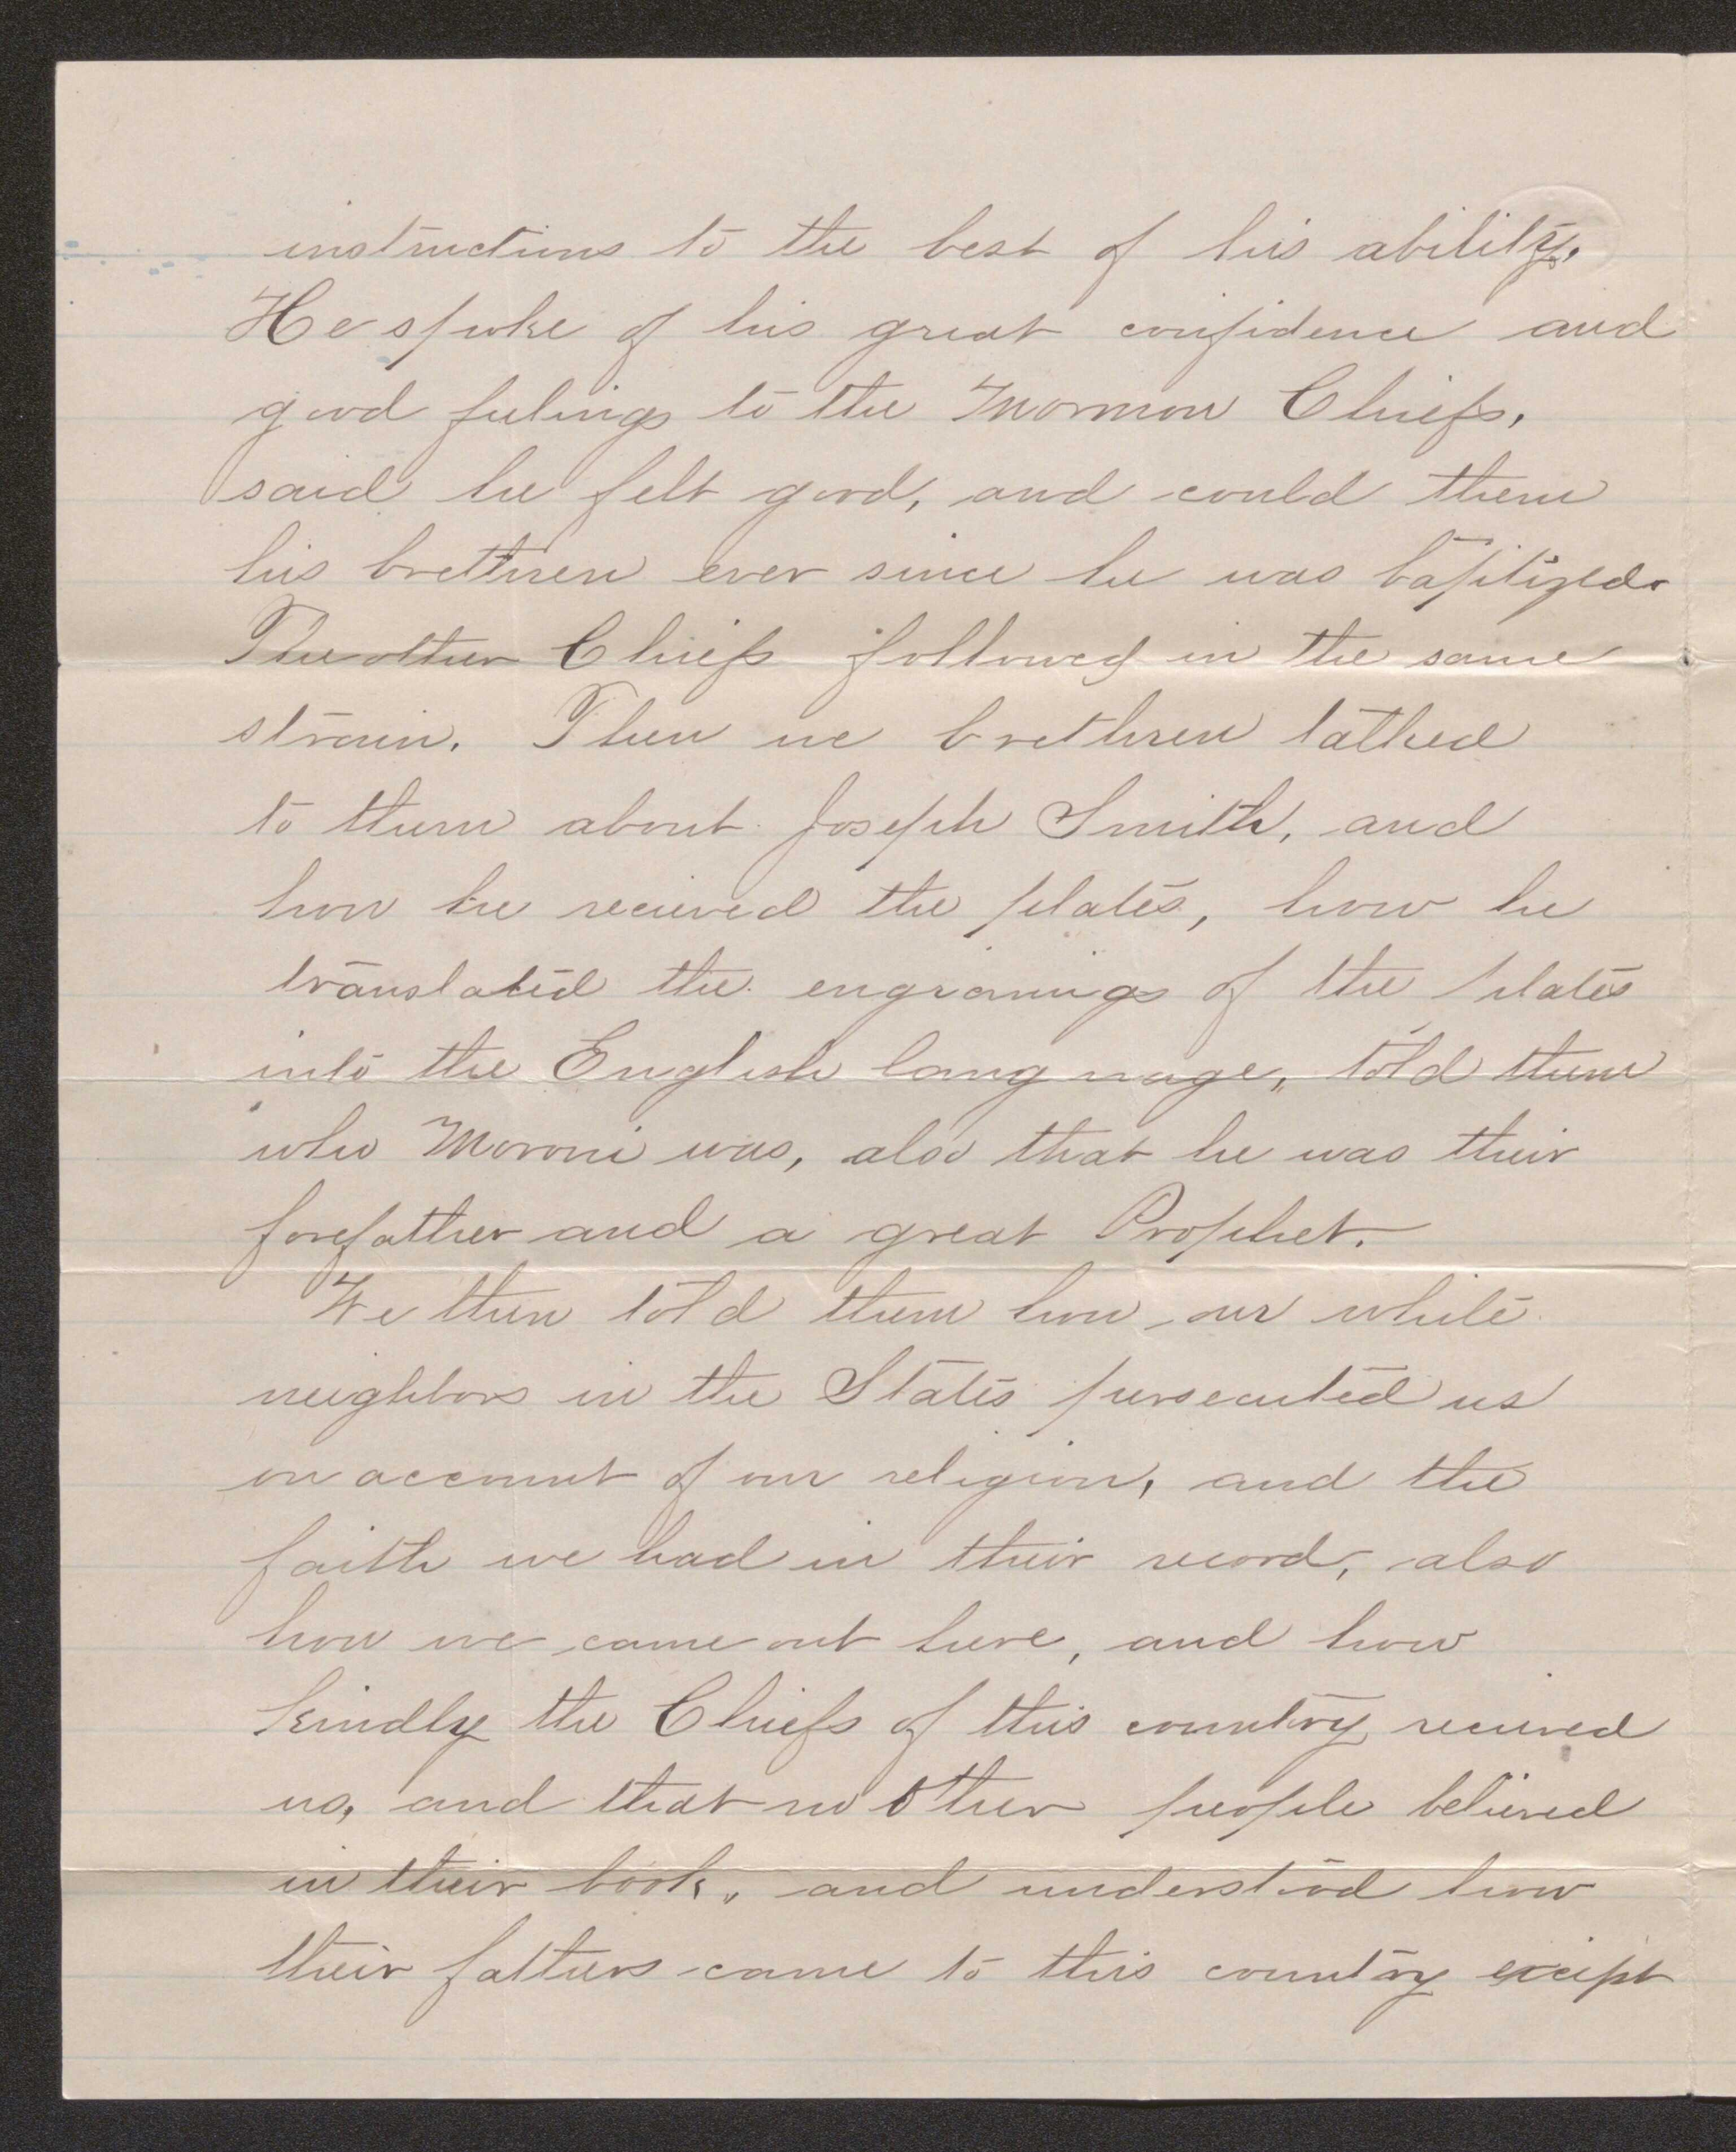 instructions to the best of his ability.
He spoke of his great confidence and
good feelings to the Mormon Chiefs,
said he felt good, and could them
his brethren ever since he was baptized.
The other Chiefs followed in the same
strain. Then we brethren talked
to them about Joseph Smith, and
how he recieved the plates, how he
translated the engravings of the plates
into the English language, told them
who Moroni was, also that he was their
forefather and a great Prophet.
We then told them how our white
neighbors in the States persecuted us
on account of our religion, and the
faith we had in their record, also
how we came out here, and how
kindly the Chiefs of this country recieved
us, and that no other people believed
in their book, and understood how
their fathers came to this country except